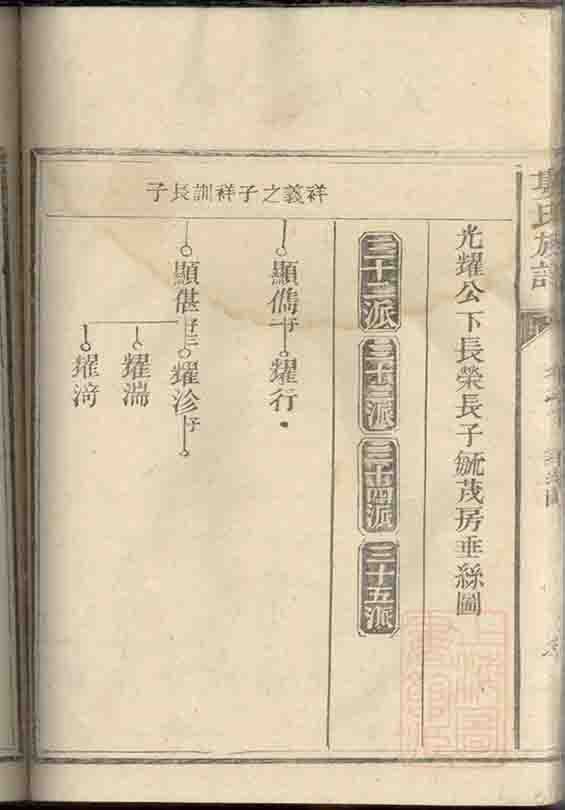 氏族譜
光耀公下長榮長子毓茂房垂絲圖
三十二派
三十三派
三十四派
三十五派
祥義之子祥訓長子
顯儁子一
耀行
顯偡子三
耀沴子
耀湍
耀渏